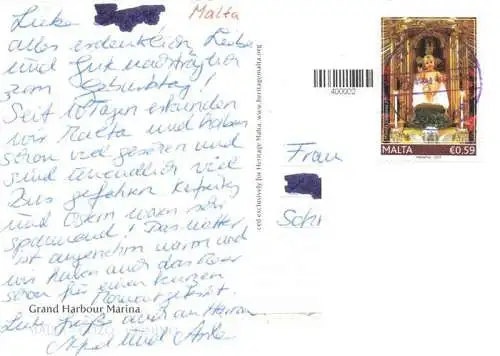 Liebe
Malta
alles erdenklich Liebe
und Gute nachträglich
zum Geburtstag!
Seit 10 Tagen erkunden
wir Malta und haben
schon viel gesehen und
sind unendlich viel
Bus gefahren
und Ostern waren sehr
spannend! Das Wetter
ist angenehm warm und
wir haben auch das Meer
schon für einen kurzen
Grand Harbour Marina
Liebe Grüße auch an
und
ced exclusively for Heritage Malta. www.heritagemalta.org
400002
MALTA €0.59
Frau
Schr